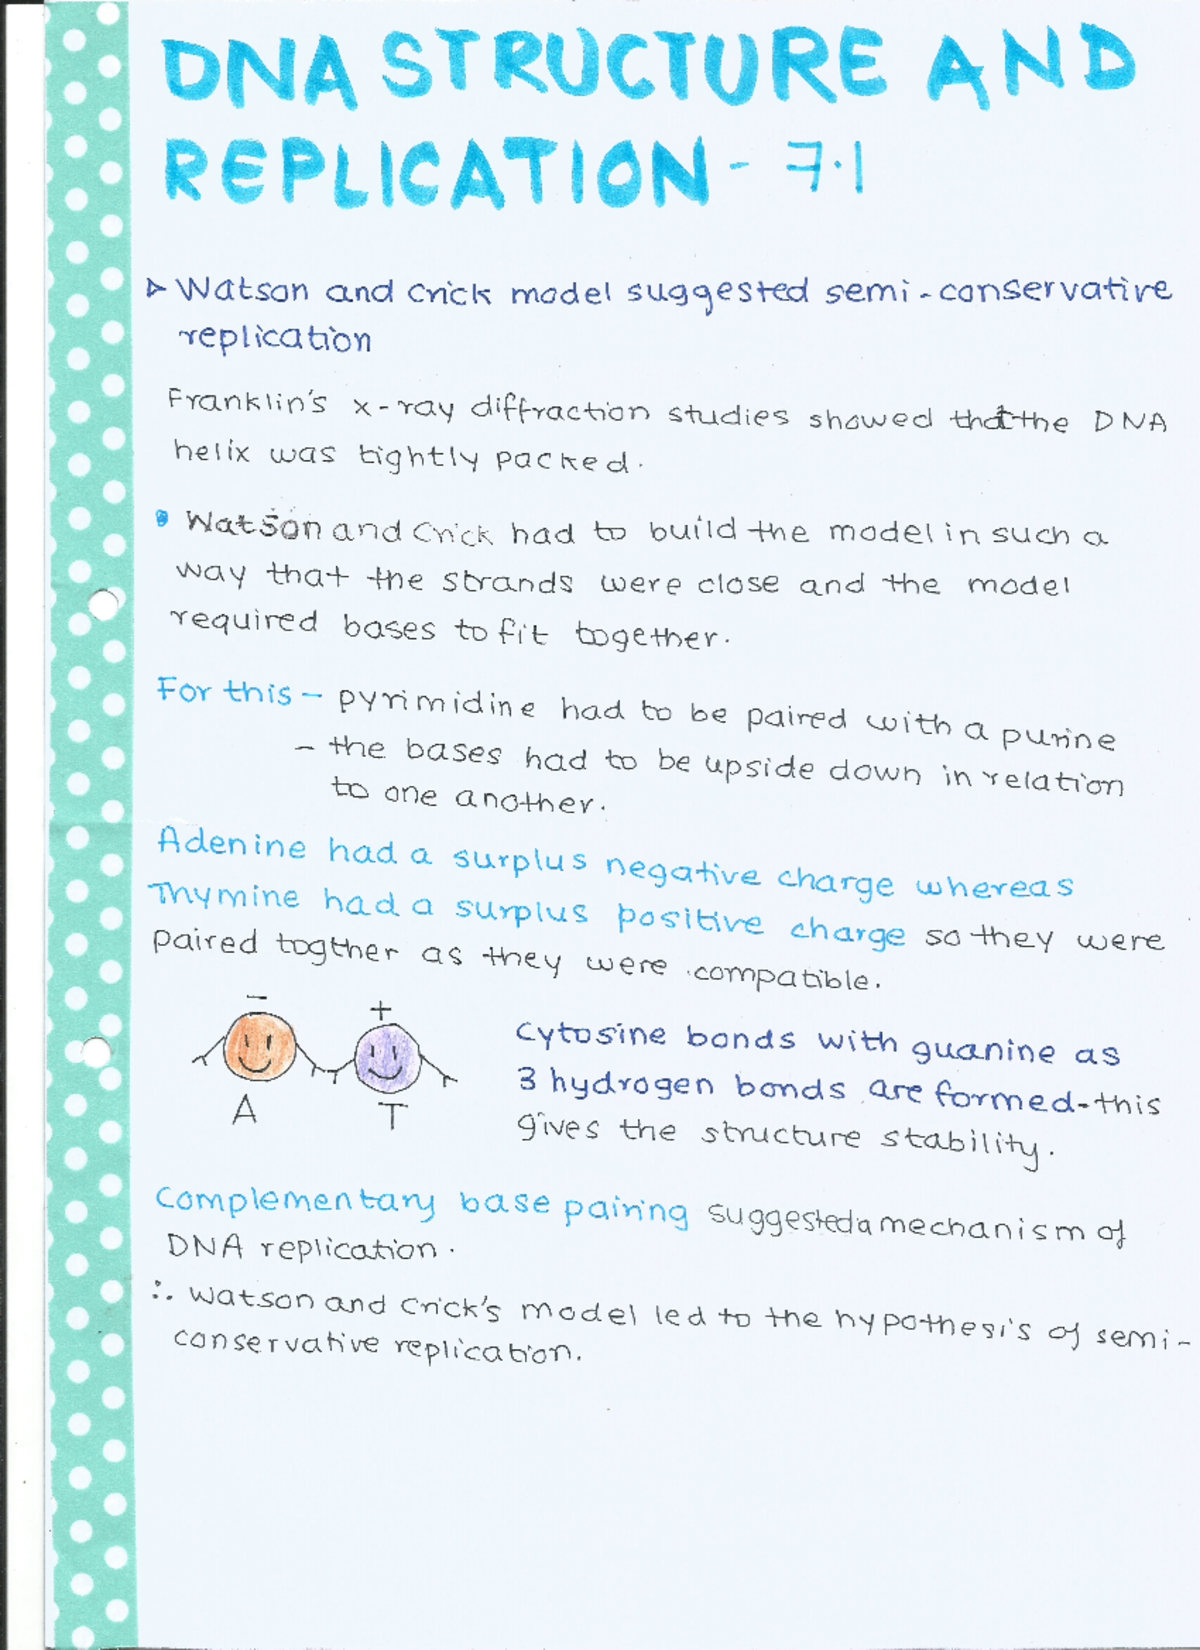 DNA STRUCTURE AND
REPLICATION - 7.1
Watson and Crick model suggested semi-conservative
replication
Franklin's x-ray diffraction studies showed that the DNA
helix was tightly packed.
• Watson and Crick had to build the model in such a
way that the strands were close and the model
required bases to fit together.
For this - pyrimidine had to be paired with a purine
- the bases had to be upside down in relation
to one another.
Adenine had a surplus negative charge whereas
Thymine had a surplus positive charge so they were
paired togther as they were compatible.
- +
A T
Cytosine bonds with guanine as
3 hydrogen bonds are formed - this
gives the structure stability.
Complementary base pairing suggested a mechanism of
DNA replication.
∴ Watson and Crick's model led to the hypothesis of semi-
conservative replication.